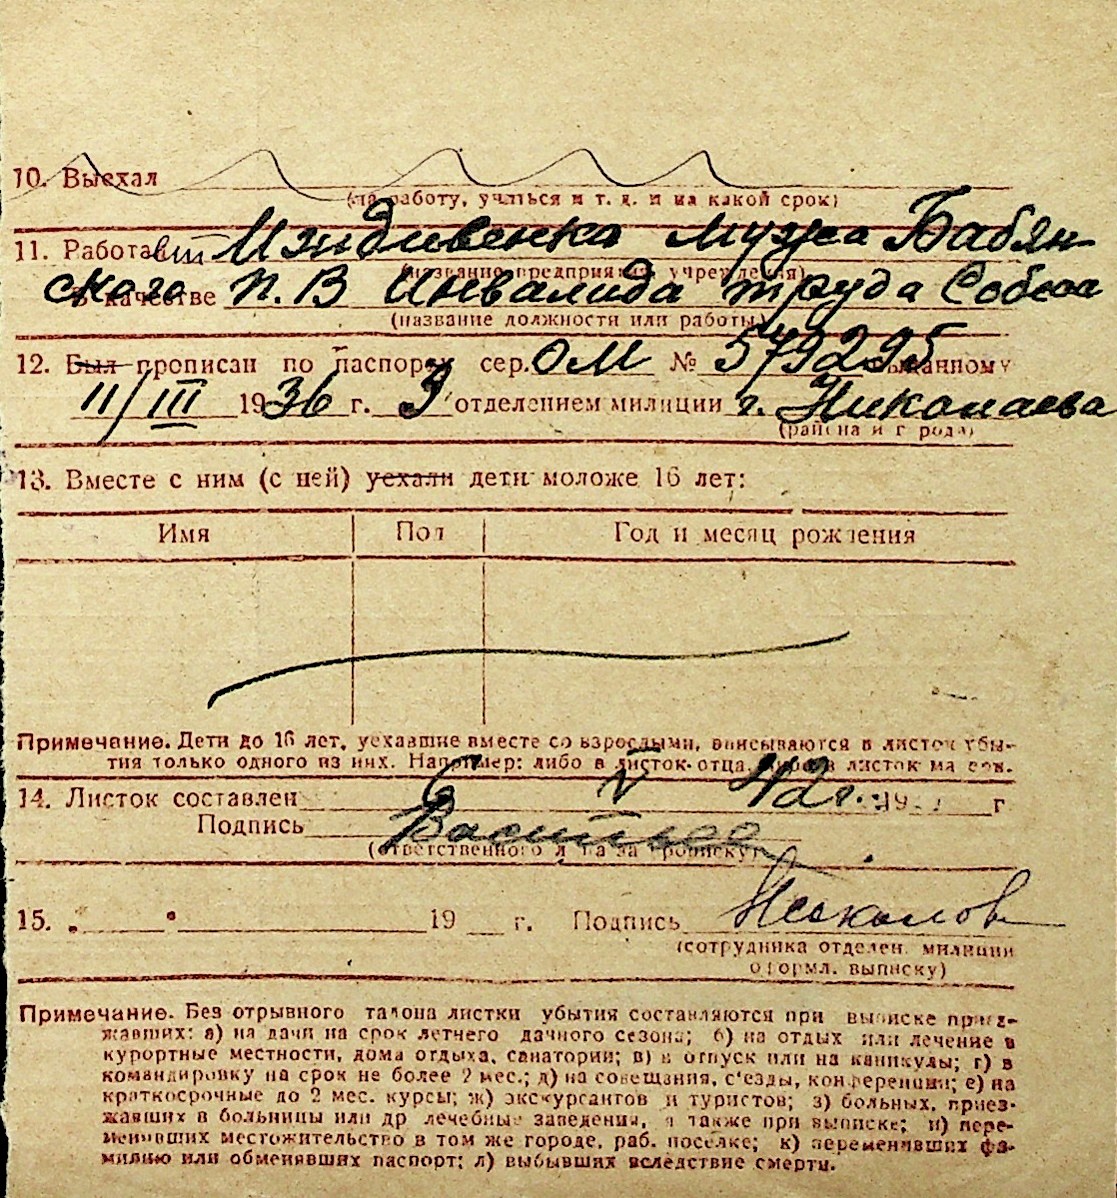 10. Выехал
(на работу, учиться и т. д. и на какой срок)
11. Работает Иждивенка мужа Бабян-
(название предприятия, учреждения)
ского в качестве П. В Инвалида труда Собеса
(название должности или работы)
12. Был прописан по паспорту сер. ОМ № 579295 выданному
11/III 1936 г. 3 отделением милиции г. Николаева
(района и города)
13. Вместе с ним (с ней) уехали дети моложе 16 лет:
Имя Пол Год и месяц рождения
Примечание. Дети до 16 лет, уехавшие вместе со взрослыми, вписываются в листок убы-
тия только одного из них. Например: либо в листок отца, либо в листок матери.
14. Листок составлен 6 V 42 г. 19 г
Подпись
(ответственного лица за прописку)
15. 19 г. Подпись
(сотрудника отделен. милиции
оформл. выписку)
Примечание. Без отрывного талона листки убытия составляются при выписке приез-
жавших: а) на дачи на срок летнего дачного сезона; б) на отдых или лечение в
курортные местности, дома отдыха, санатории; в) в отпуск или на каникулы; г) в
командировку на срок не более 2 мес.; д) на совещания, с'езды, конференции; е) на
краткосрочные до 2 мес. курсы; ж) экскурсантов и туристов; з) больных, приез-
жавших в больницы или др лечебные заведения, а также при выписке; и) пере-
менивших местожительство в том же городе, раб. поселке; к) переменивших фа-
милию или обменявших паспорт; л) выбывших вследствие смерти.